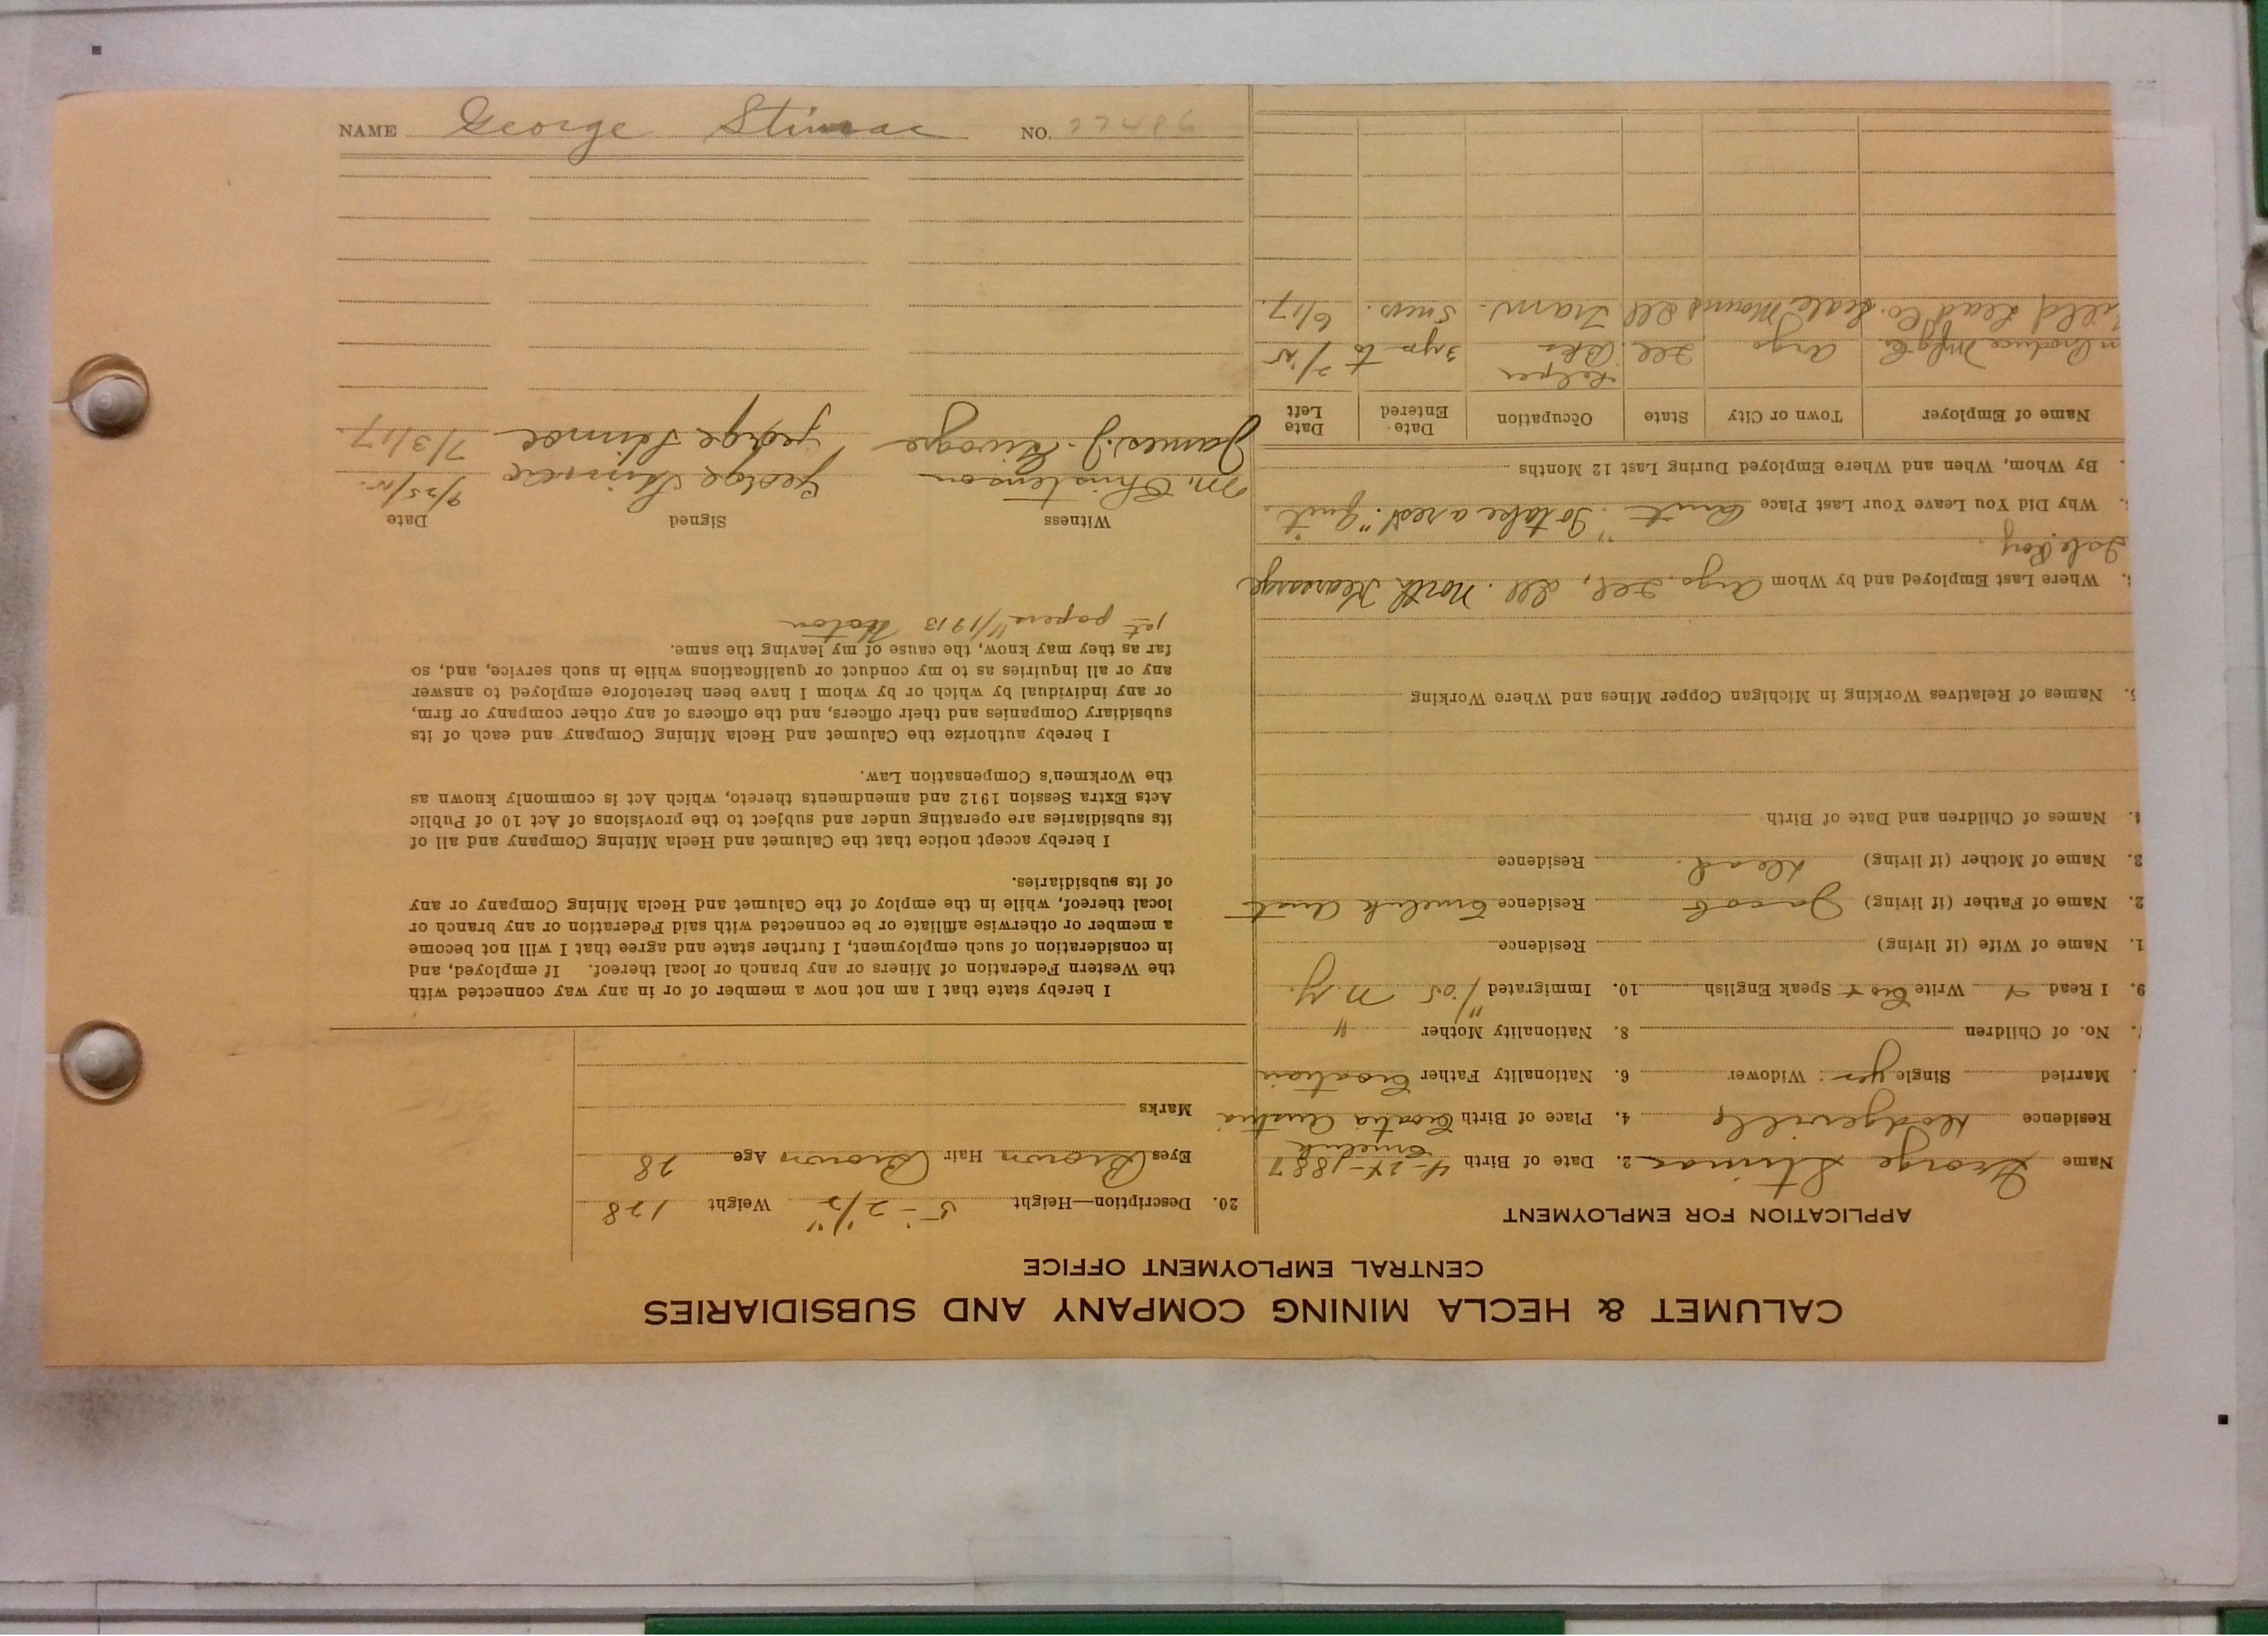 NAME George Stimac NO. 22486
CALUMET & HECLA MINING COMPANY AND SUBSIDIARIES
CENTRAL EMPLOYMENT OFFICE
APPLICATION FOR EMPLOYMENT
Name George Stimac 2. Date of Birth 4-24-1887
Residence Hodgeville 4. Place of Birth Croatia Austria
Married Single yes Widower 6. Nationality Father Croatian
No. of Children 8. Nationality Mother "
9. I Read Write Cro + Speak English 10. Immigrated 1/05 N.Y.
1. Name of Wife (if living) Residence
2. Name of Father (if living) Jacob Residence Aust
3. Name of Mother (if living) Dead. Residence
4. Names of Children and Date of Birth
5. Names of Relatives Working in Michigan Copper Mines and Where Working
Where Last Employed and by Whom Argo, Ill, Ill. North Kearsarge
Why Did You Leave Your Last Place "To take a rest." Quit.
By Whom, When and Where Employed During Last 12 Months
Name of Employer Town or City State Occupation Date Entered Date Left
Produce Mfg Co. Argo Ill Helper 3 yrs to 2/15
Lead Co. Scale Mound Ill Tram. 5 mos. 6/17.
20. Description—Height 5-2 1/2" Weight 128
Eyes Brown Hair Brown Age 28
Marks
I hereby state that I am not now a member of or in any way connected with
the Western Federation of Miners or any branch or local thereof. If employed, and
in consideration of such employment, I further state and agree that I will not become
a member or otherwise affiliate or be connected with said Federation or any branch or
local thereof, while in the employ of the Calumet and Hecla Mining Company or any
of its subsidiaries.
I hereby accept notice that the Calumet and Hecla Mining Company and all of
its subsidiaries are operating under and subject to the provisions of Act 10 of Public
Acts Extra Session 1912 and amendments thereto, which Act is commonly known as
the Workmen's Compensation Law.
I hereby authorize the Calumet and Hecla Mining Company and each of its
subsidiary Companies and their officers, and the officers of any other company or firm,
or any individual by which or by whom I have been heretofore employed to answer
any or all inquiries as to my conduct or qualifications while in such service, and, so
far as they may know, the cause of my leaving the same.
1st papers 11/1913
Witness Signed Date
M. Christenson George Stimac 9/25/15.
James J. George Stimac 7/3/17.